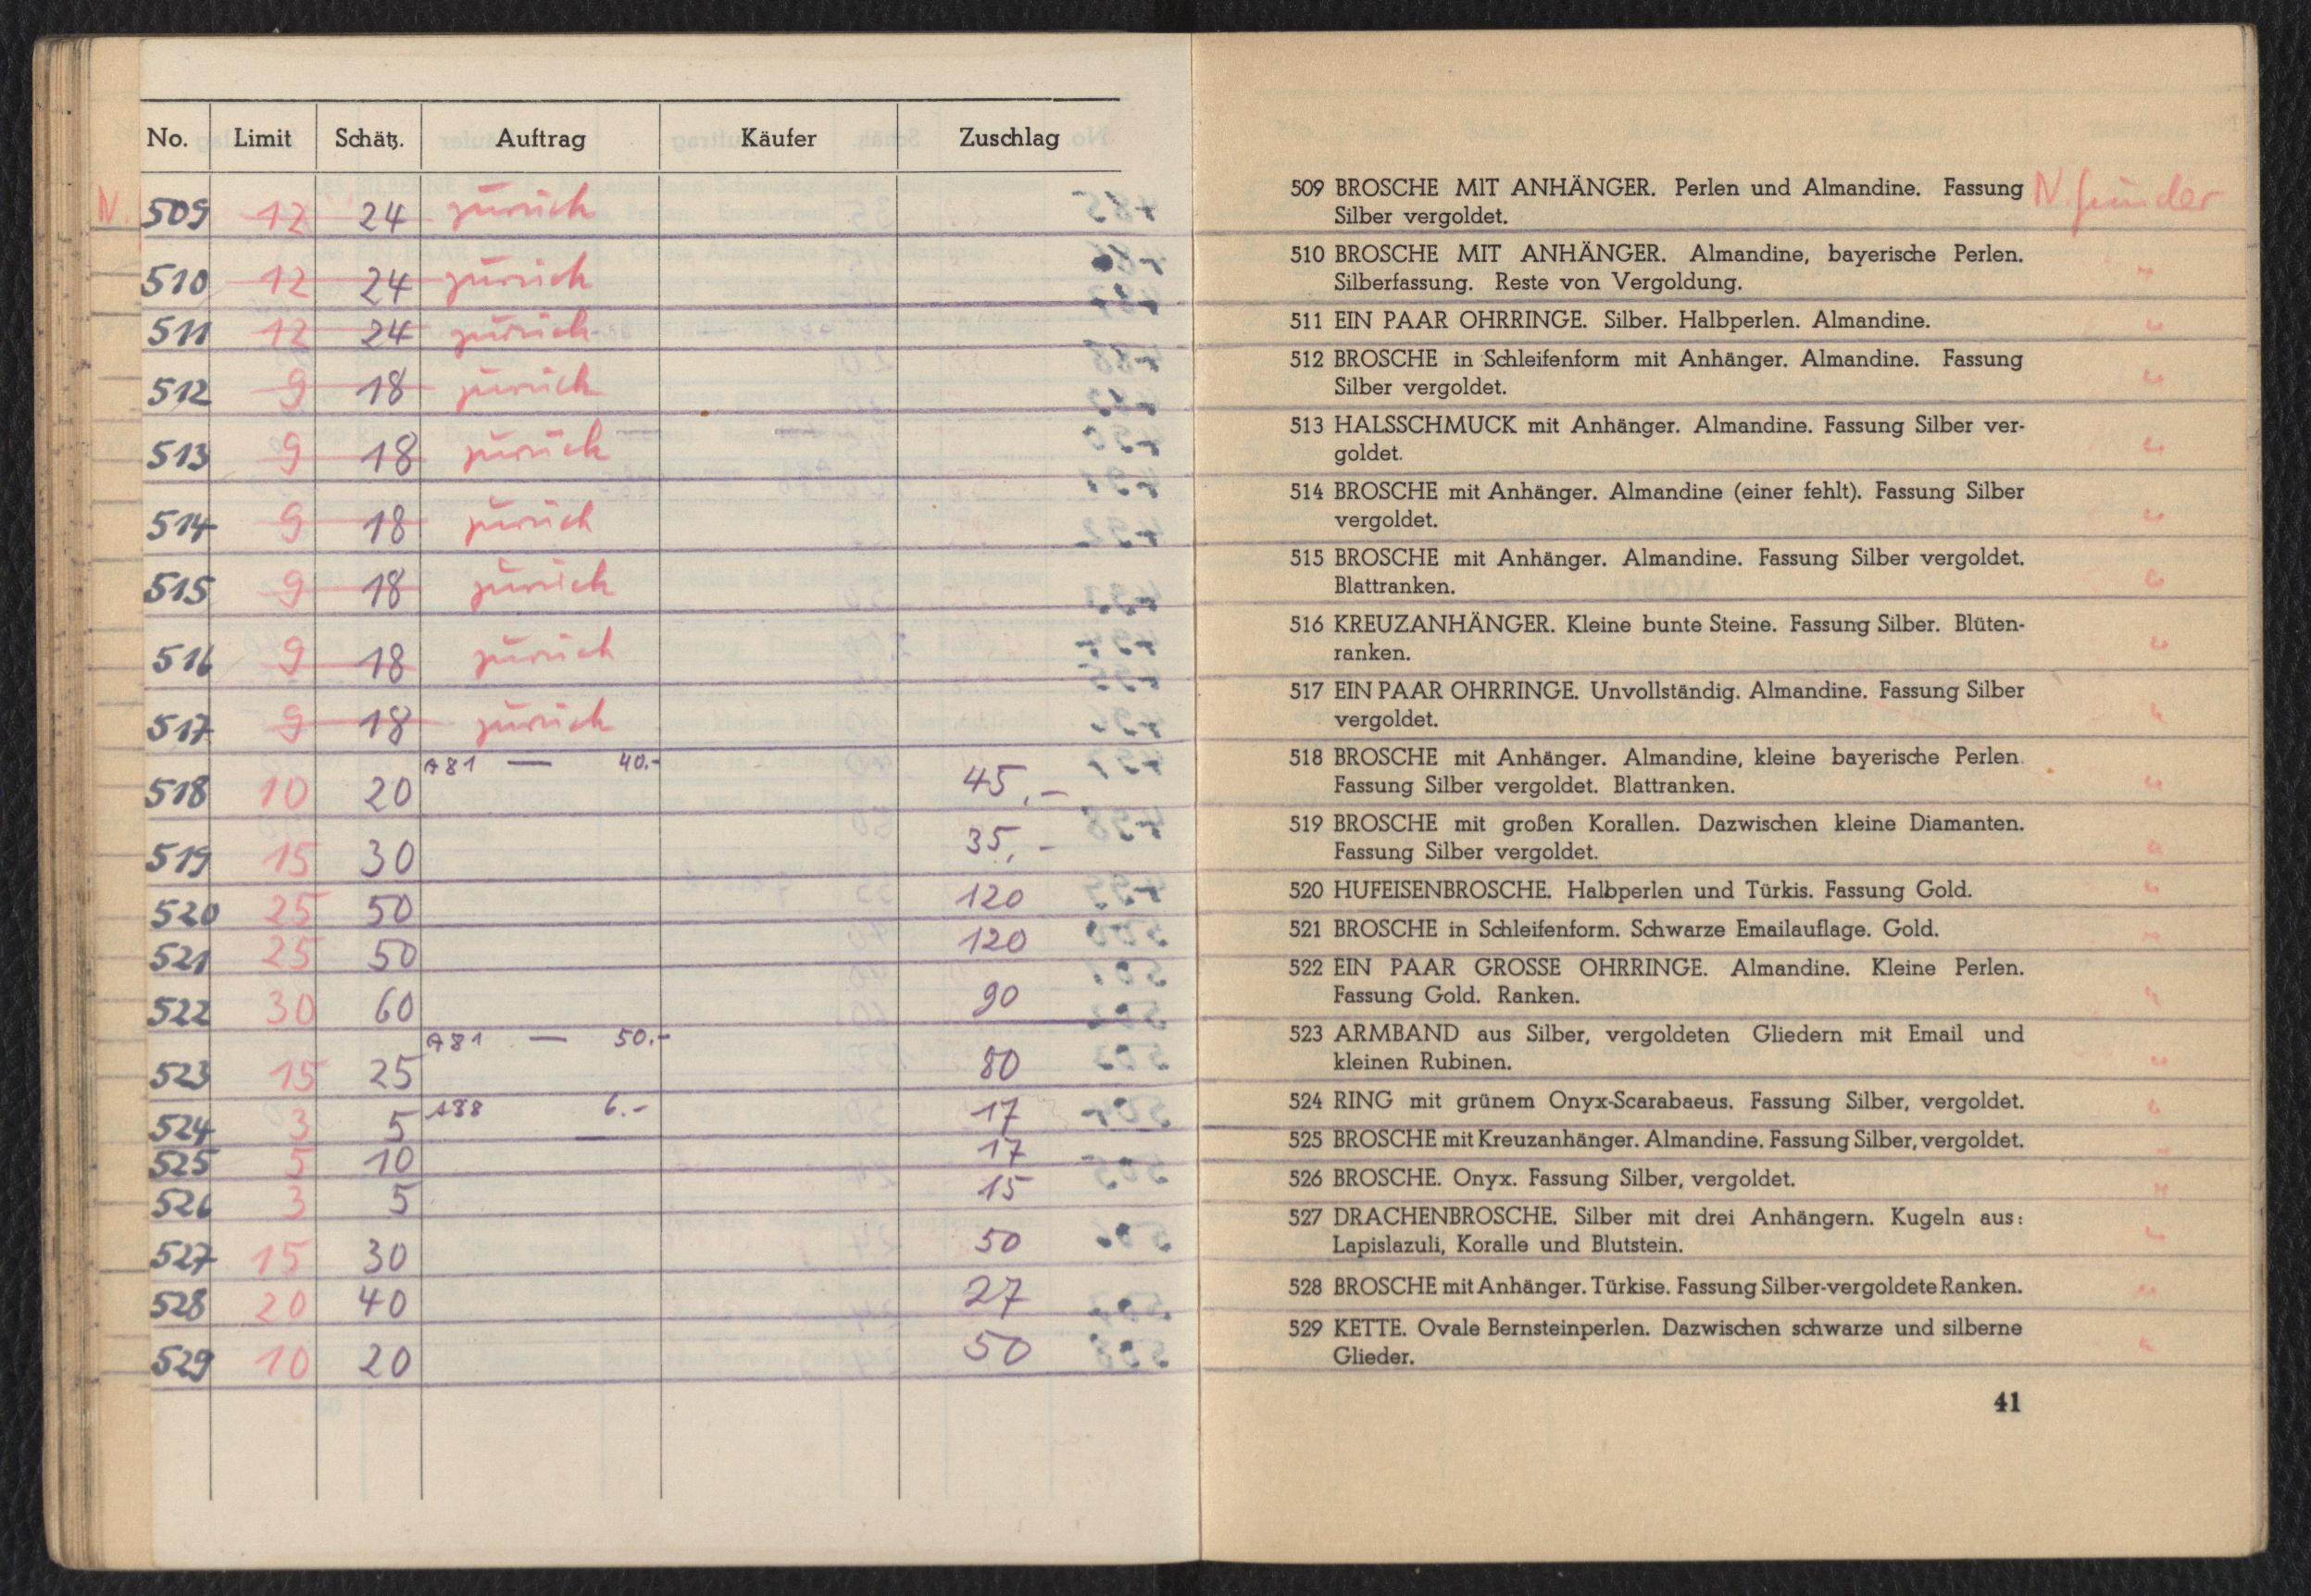 No. Limit Schätz. Auftrag Käufer Zuschlag
N. 509 12 24 zurück
510 12 24 zurück
511 12 24 zurück
512 9 18 zurück
513 9 18 zurück
514 9 18 zurück
515 9 18 zurück
516 9 18 zurück
517 9 18 zurück
A81 — 40.-
518 10 20 45,-
519 15 30 35,-
520 25 50 120
521 25 50 120
522 30 60 90
A81 — 50.-
523 15 25 80
524 3 5 A88 6.- 17
525 5 10 17
526 3 5 15
527 15 30 50
528 20 40 27
529 10 20 50
509 BROSCHE MIT ANHÄNGER. Perlen und Almandine. Fassung N.
Silber vergoldet.
510 BROSCHE MIT ANHÄNGER. Almandine, bayerische Perlen. "
Silberfassung. Reste von Vergoldung.
511 EIN PAAR OHRRINGE. Silber. Halbperlen. Almandine. "
512 BROSCHE in Schleifenform mit Anhänger. Almandine. Fassung "
Silber vergoldet.
513 HALSSCHMUCK mit Anhänger. Almandine. Fassung Silber ver- "
goldet.
514 BROSCHE mit Anhänger. Almandine (einer fehlt). Fassung Silber "
vergoldet.
515 BROSCHE mit Anhänger. Almandine. Fassung Silber vergoldet. "
Blattranken.
516 KREUZANHÄNGER. Kleine bunte Steine. Fassung Silber. Blüten- "
ranken.
517 EIN PAAR OHRRINGE. Unvollständig. Almandine. Fassung Silber "
vergoldet.
518 BROSCHE mit Anhänger. Almandine, kleine bayerische Perlen. "
Fassung Silber vergoldet. Blattranken.
519 BROSCHE mit großen Korallen. Dazwischen kleine Diamanten. "
Fassung Silber vergoldet.
520 HUFEISENBROSCHE. Halbperlen und Türkis. Fassung Gold. "
521 BROSCHE in Schleifenform. Schwarze Emailauflage. Gold. "
522 EIN PAAR GROSSE OHRRINGE. Almandine. Kleine Perlen. "
Fassung Gold. Ranken.
523 ARMBAND aus Silber, vergoldeten Gliedern mit Email und "
kleinen Rubinen.
524 RING mit grünem Onyx-Scarabaeus. Fassung Silber, vergoldet. "
525 BROSCHE mit Kreuzanhänger. Almandine. Fassung Silber, vergoldet. "
526 BROSCHE. Onyx. Fassung Silber, vergoldet. "
527 DRACHENBROSCHE. Silber mit drei Anhängern. Kugeln aus: "
Lapislazuli, Koralle und Blutstein.
528 BROSCHE mit Anhänger. Türkise. Fassung Silber-vergoldete Ranken. "
529 KETTE. Ovale Bernsteinperlen. Dazwischen schwarze und silberne "
Glieder.
41